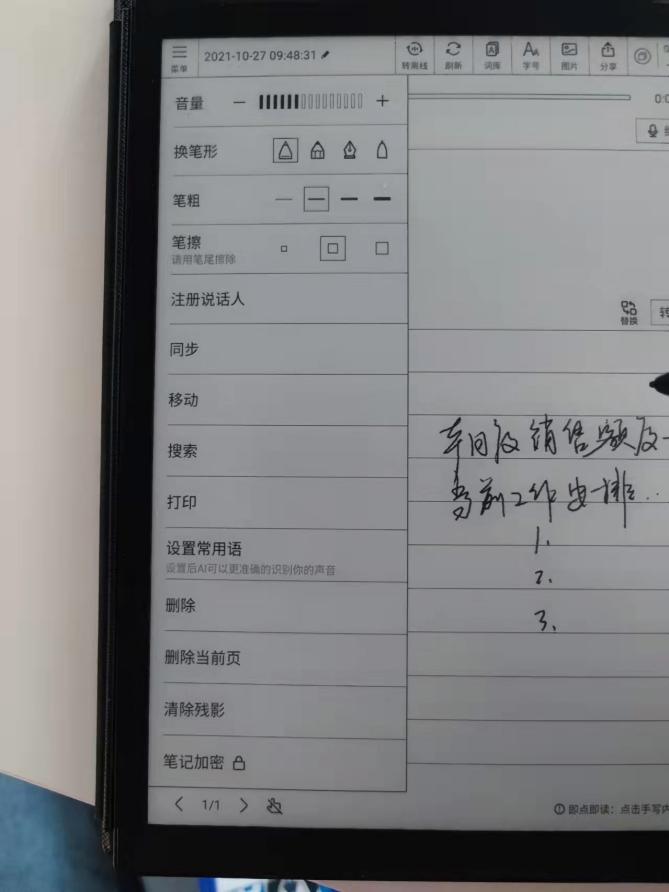 菜单 2021-10-27 09:48:31 转离线 刷新 词库 字号 图片 分享
音量
0:0
换笔形
笔粗
笔擦
请用笔尾擦除
注册说话人
替换 转
同步
移动
销售额及
搜索
当前工作安排..
打印
1.
设置常用语
设置后AI可以更准确的识别你的声音
2.
删除
3.
删除当前页
清除残影
笔记加密
1/1
即点即读：点击手写内